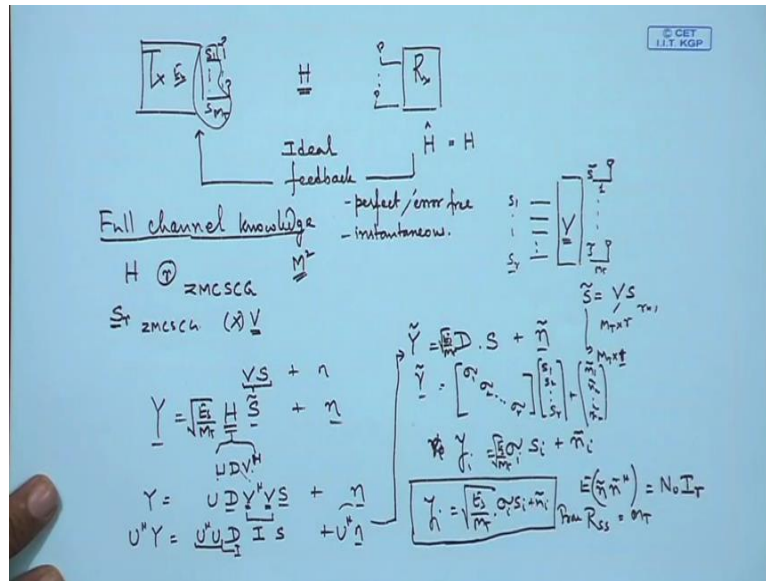 © CET
I.I.T. KGP
Tx Es
S1
SMT
H
Rx
Ĥ = H
Ideal
feedback
- perfect/error free
- instantaneous.
Full channel knowledge
H r ZMCSCG M²
Sr ZMCSCG (x) V
S1
Sr
V
S̃ = VS
MT×r r×1
MT×1
VS + n
Y = √(Es/MT) H S̃ + n
UDVᴴ
Y = U D Vᴴ V S + n
UᴴY = UᴴU D I S + Uᴴn
I
Ỹ = √(Es/MT) D . S + ñ
Ỹ = [σ1 σ2 ... σr] [S1 S2 ⋮ Sr] + [ñ1 ñ2 ⋮ ñr]
ỹi = √(Es/MT) σi si + ñi
ỹi = √(Es/MT) σi si + ñi
E(ñ ñᴴ) = N0 Ir
RSS = mT